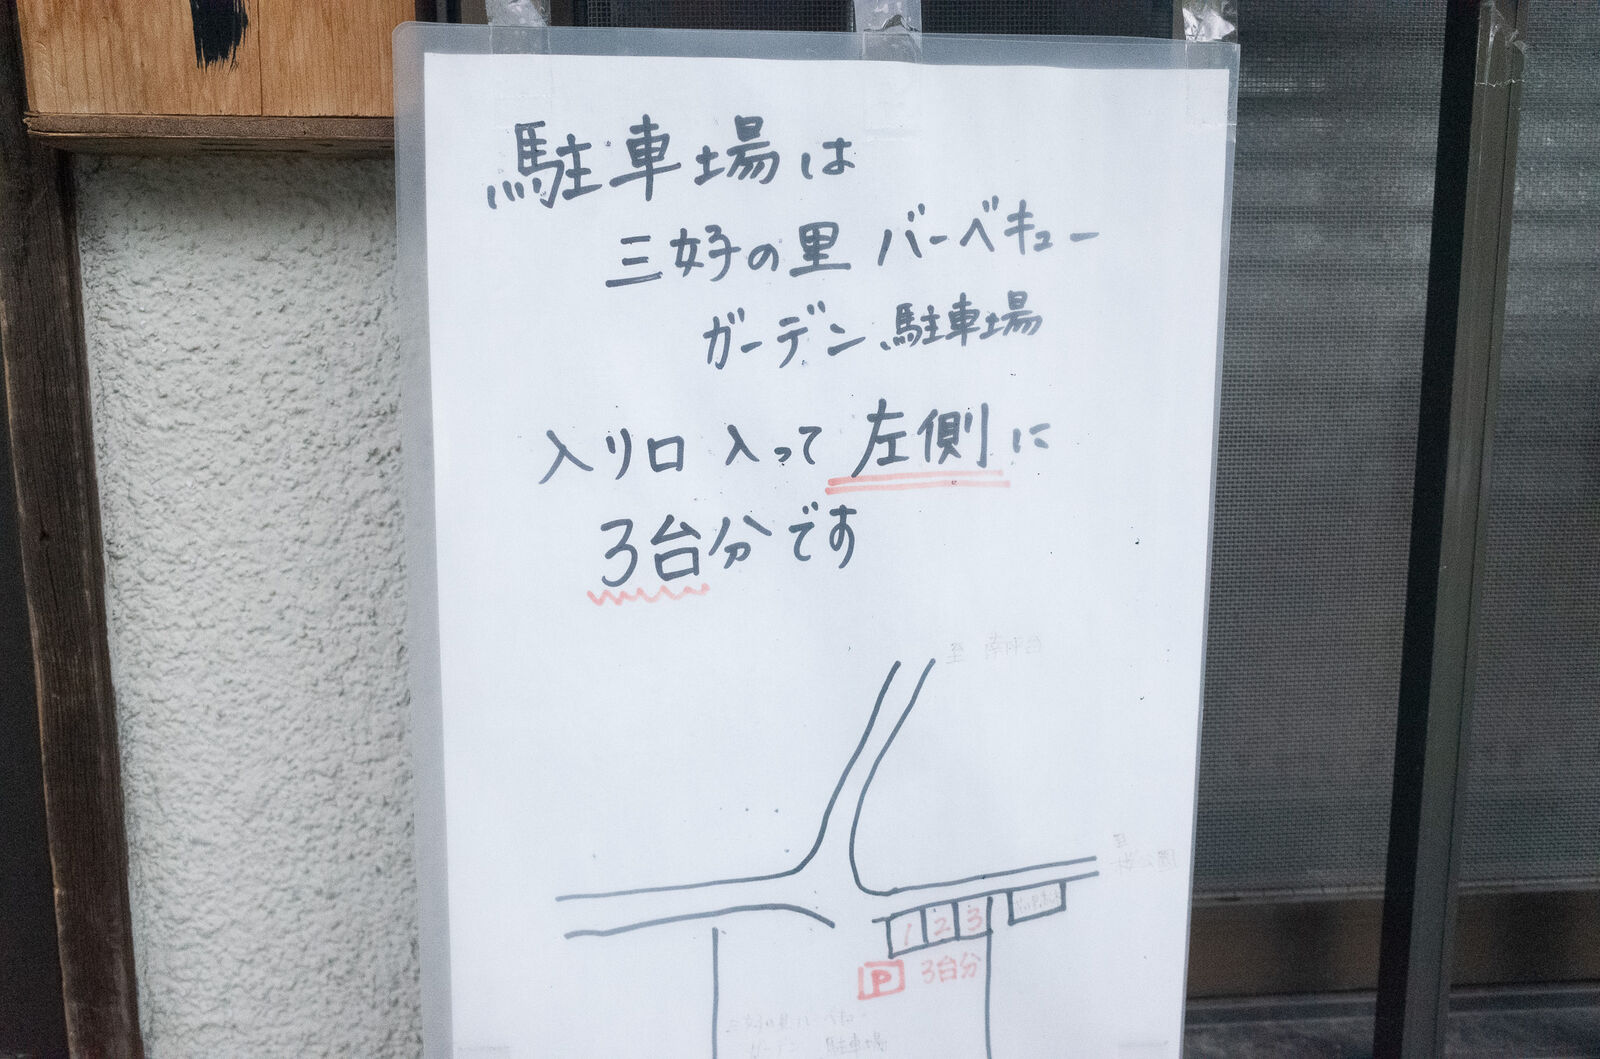 駐車場は
三好の里 バーベキュー
ガーデン 駐車場
入り口 入って 左側に
3台分です
至
1 2 3
P 3台分
三好の里 バーベキュー
ガーデン 駐車場